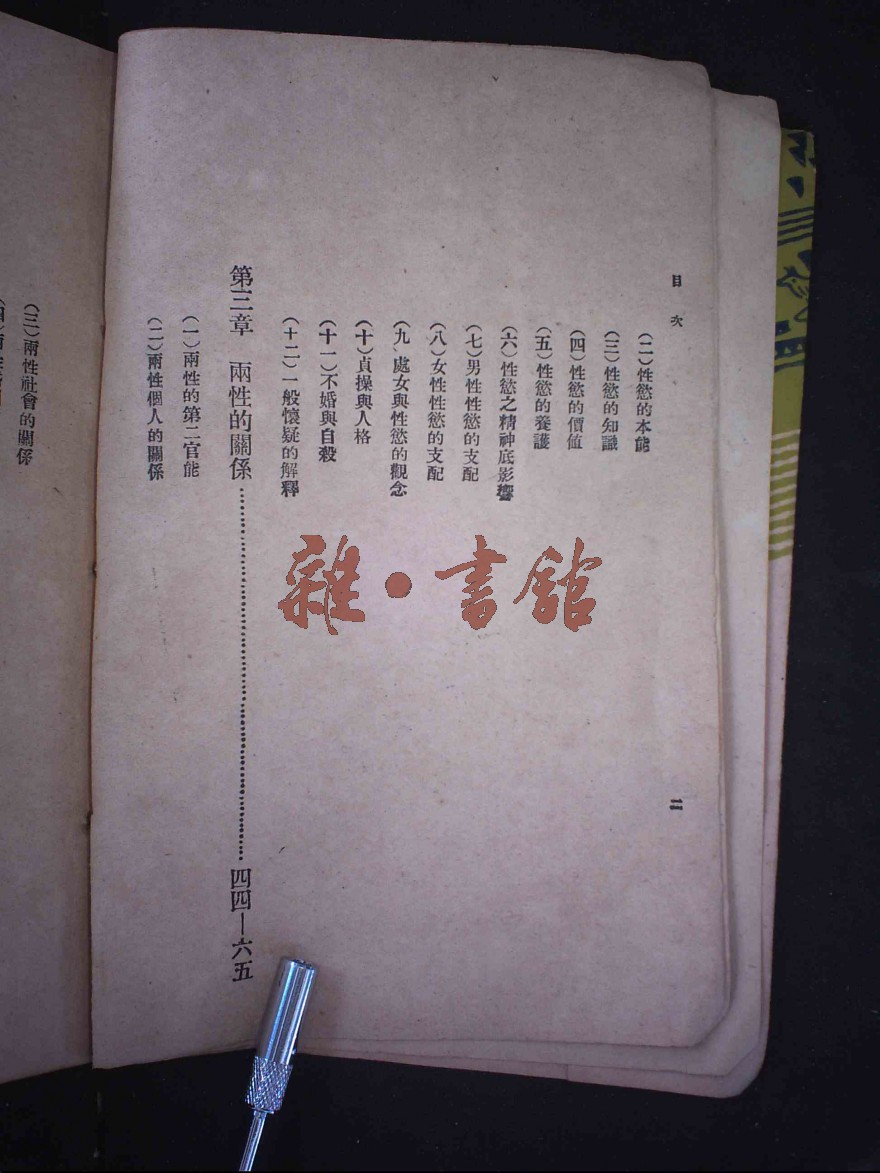 目次
二
(二)性慾的本能
(三)性慾的知識
(四)性慾的價值
(五)性慾的養護
(六)性慾之精神底影響
(七)男性性慾的支配
(八)女性性慾的支配
(九、處女與性慾的觀念
(十)貞操與人格
(十一)不婚與自殺
(十二)一般懷疑的解釋
第三章 兩性的關係……四四—六五
(一)兩性的第二官能
(二)兩性個人的關係
(三)兩性社會的關係
雜·書館